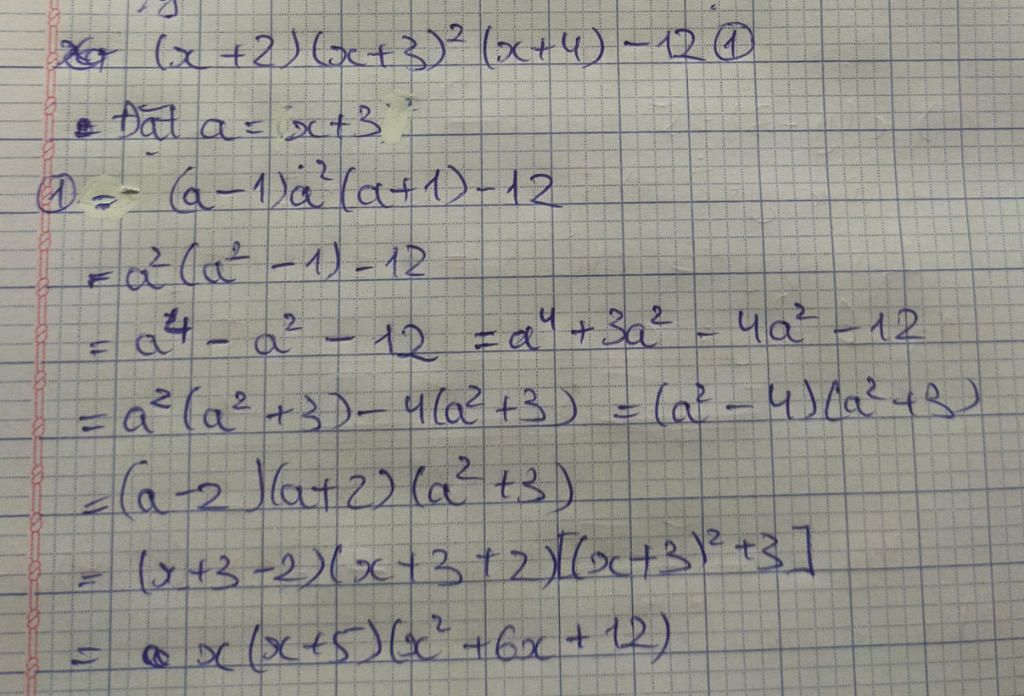 (x+2)(x+3)²(x+4)-12 ①
• Đặt a = x+3
① = (a-1)a²(a+1)-12
= a²(a²-1)-12
= a⁴ - a² - 12 = a⁴ + 3a² - 4a² - 12
= a²(a²+3) - 4(a²+3) = (a²-4)(a²+3)
= (a-2)(a+2)(a²+3)
= (x+3-2)(x+3+2)[(x+3)²+3]
= x(x+5)(x²+6x+12)